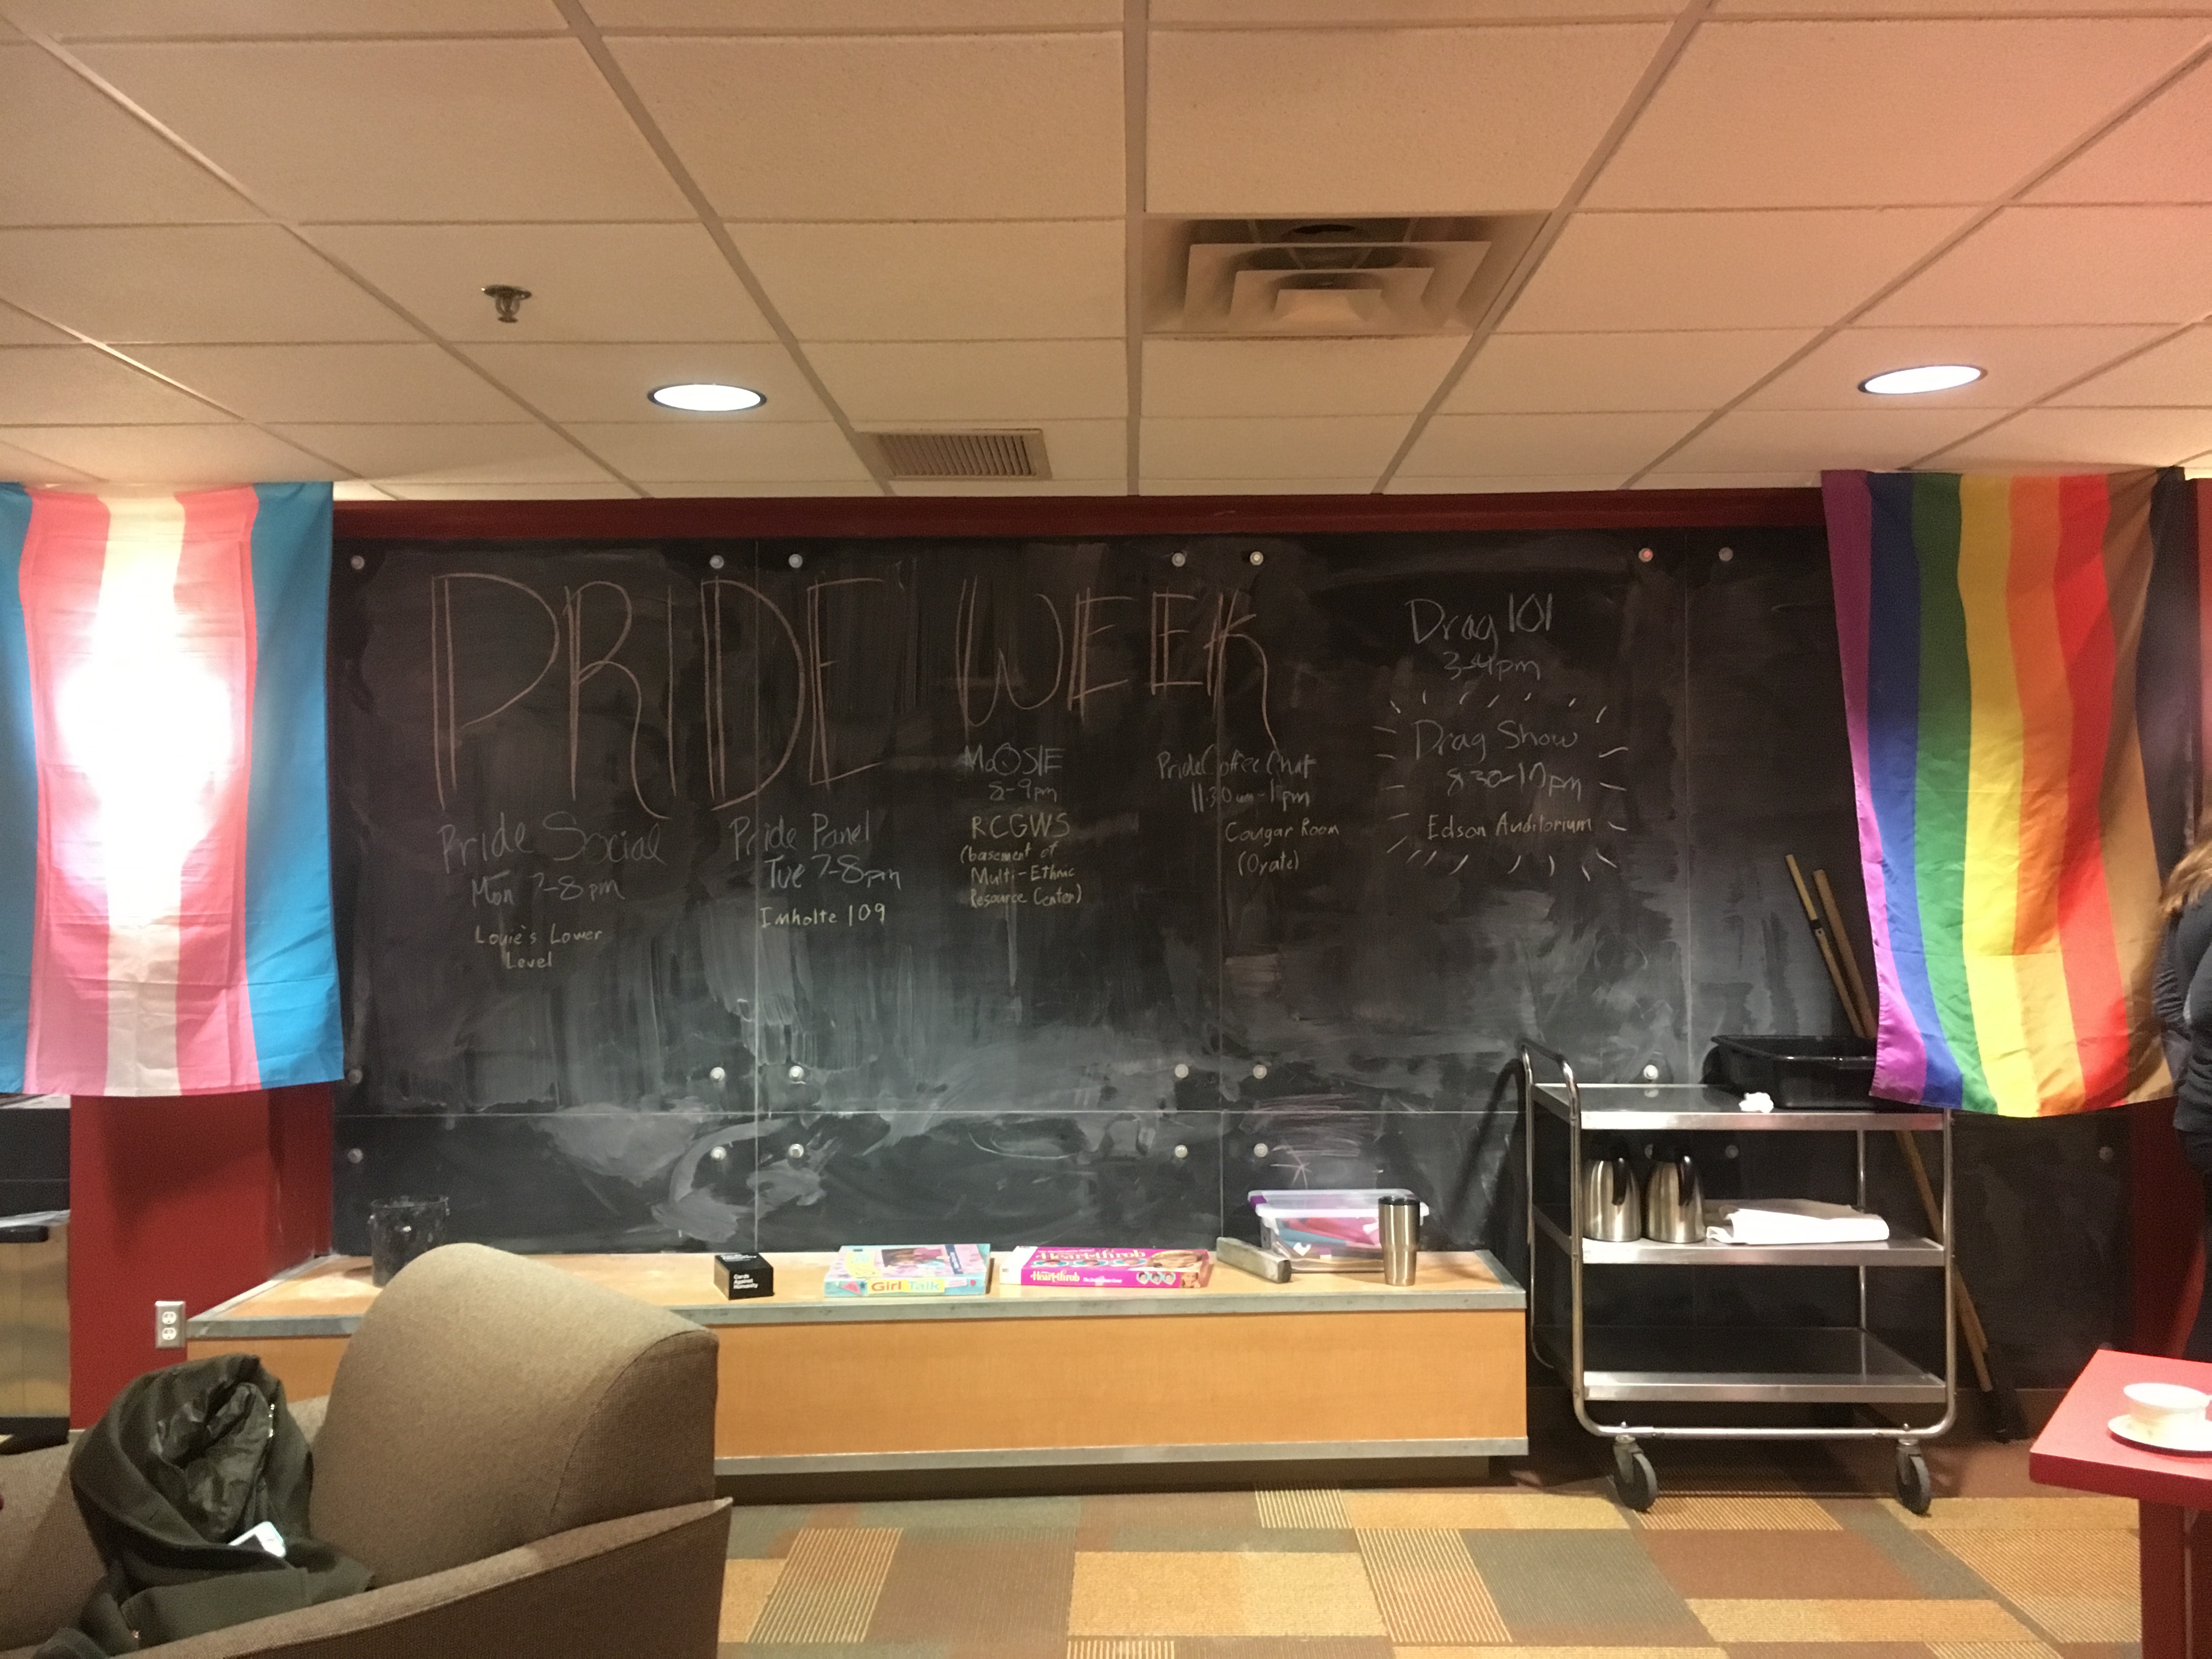 PRIDE WEEK
Pride Social
Mon 7-8pm
Louie's Lower
Level
Pride Panel
Tue 7-8pm
Imholte 109
MoQSIE
8-9pm
RCGWS
(basement of
Multi-Ethnic
Resource Center)
Pride Coffee Chat
11:30am-1pm
Cougar Room
(Oyate)
Drag 101
3-4pm
Drag Show
8:30-10pm
Edson Auditorium
Cards
Against
Humanity
Girl Talk
Heartthrob
Heartthrob